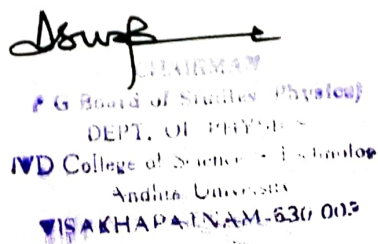 CHAIRMAN
P G Board of Studies Physics)
DEPT. OF PHYSICS
College of Science
Andhra University
VISAKHAPATNAM-530 003